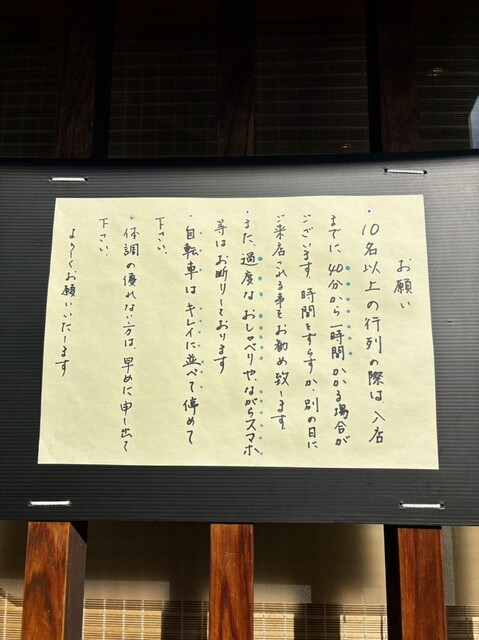 お願い
・10名以上の行列の際は、入店
までに、40分から一時間かかる場合が
ございます。時間をずらすか、別の日に
ご来店される事をお勧め致します。
・また、過度なおしゃべりや、ながらスマホ
等はお断りしております
・自転車はキレイに並べて停めて
下さい。
・体調の優れない方は、早めに申し出て
下さい。
よろしくお願いいたします